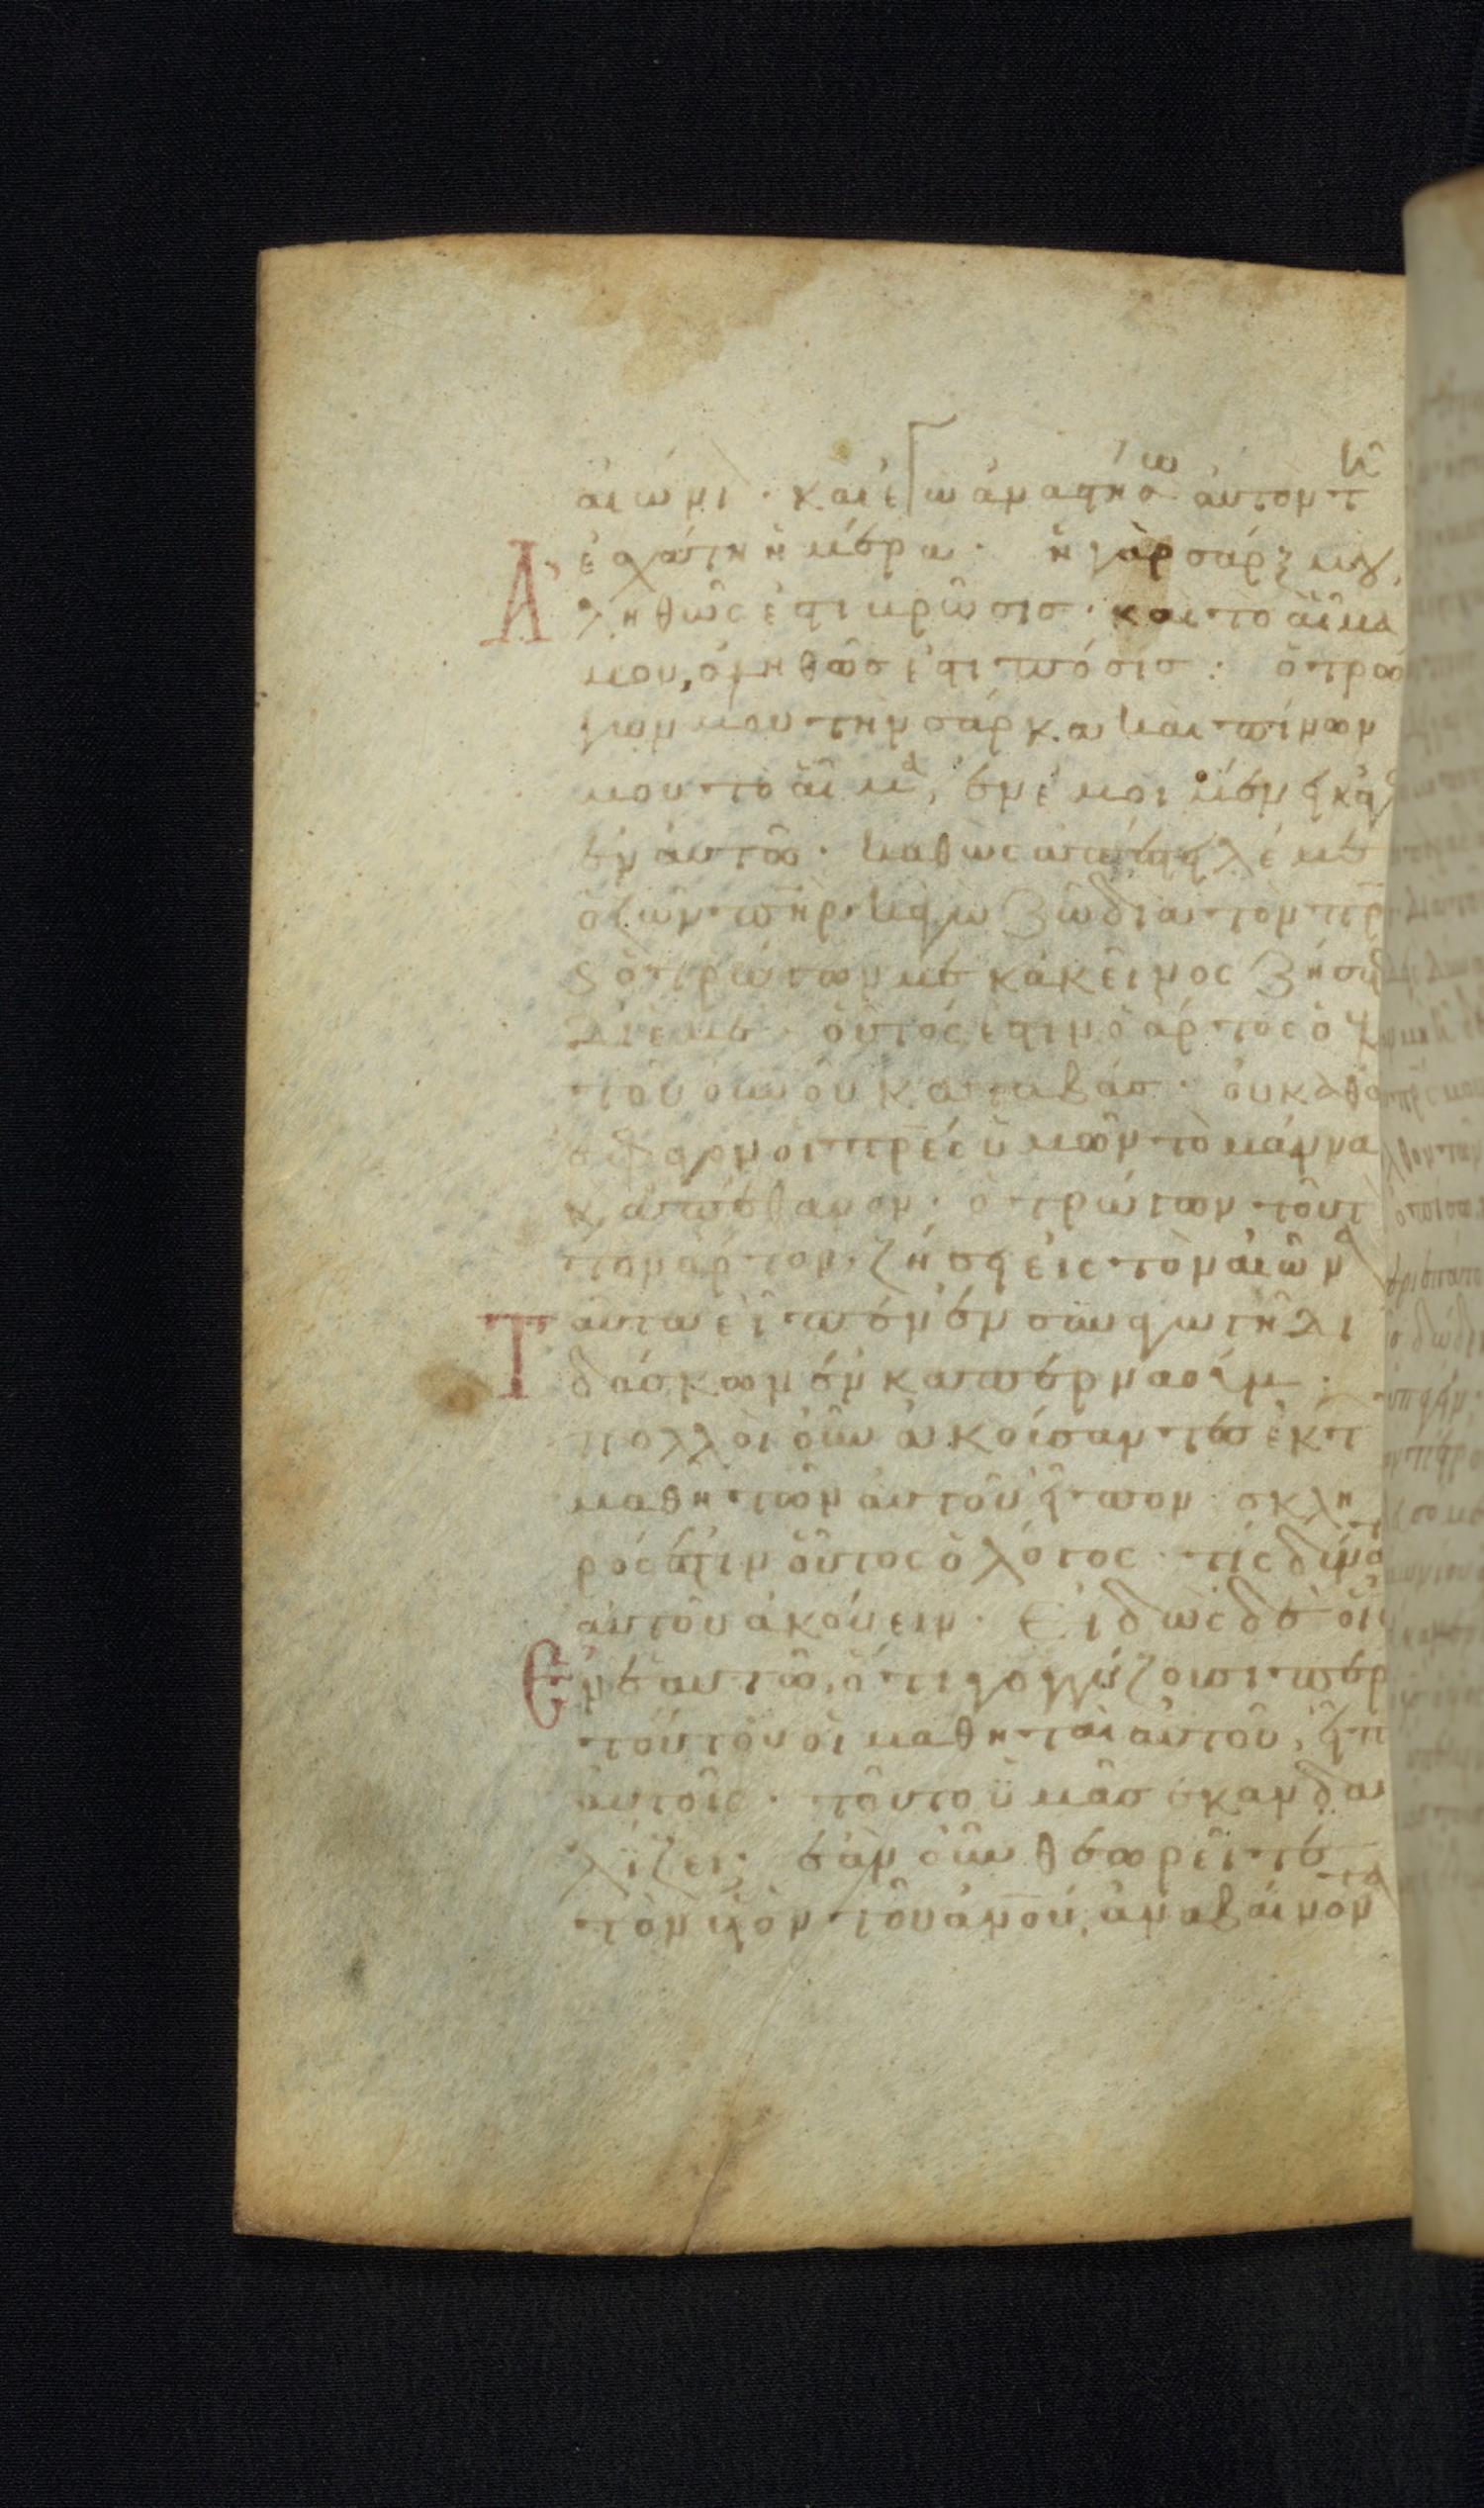 αἰώνι · καὶ ἐγὼ ἀναστήσω αὐτὸν τῆ
ἐσχάτη ἡμέρα · ἡ γὰρ σάρξ μου,
Ἀληθῶς ἐστι βρῶσις · καὶ τὸ αἷμα
μου, ἀληθῶς ἐστι πόσις : ὁ τρώ
γων μου τὴν σάρκα καὶ πίνων
μου τὸ αἷμα, ἐν ἐμοὶ μένει κἀγὼ
ἐν αὐτῶ · καθὼς ἀπέστειλέ με
ὁ ζῶν πηρ · κἀγὼ ζῶ διὰ τὸν πρα
ϗ ὁ τρώγων με κἀκεῖνος ζήσεται
δι' ἐμέ · οὗτός ἐστιν ὁ ἄρτος ὁ ἐκ
τοῦ οὐνοῦ καταβάς · οὐ καθὼς
ἔφαγον οἱ πρες ὑμῶν τὸ μάννα
ϗ ἀπέθανον · ὁ τρώγων τοῦτον
τὸν ἄρτον · ζήσει εἰς τὸν αἰῶνα
Ταῦτα εἶπεν ἐν συναγωγῆ δι
δάσκων ἐν καπερναούμ ·
πολλοὶ οὖν ἀκούσαντες ἐκ τῶν
μαθητῶν αὐτοῦ εἶπον · σκλη
ρός ἐστιν οὗτος ὁ λόγος · τίς δύναται
αὐτοῦ ἀκούειν · Εἰδὼς δὲ ὁ ις
Ἐν ἑαυτῶ, ὅτι γογγύζουσι περὶ
τούτου οἱ μαθηταὶ αὐτοῦ, εἶπεν
αὐτοῖς · τοῦτο ὑμᾶς σκανδα
λίζει · ἐὰν οὖν θεωρεῖτε
τὸν υἱὸν τοῦ ἀνου, ἀναβαίνοντα